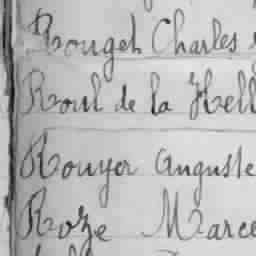 Rouget Charles
Roul de la Hell
Rouyer Auguste
Roze Marce